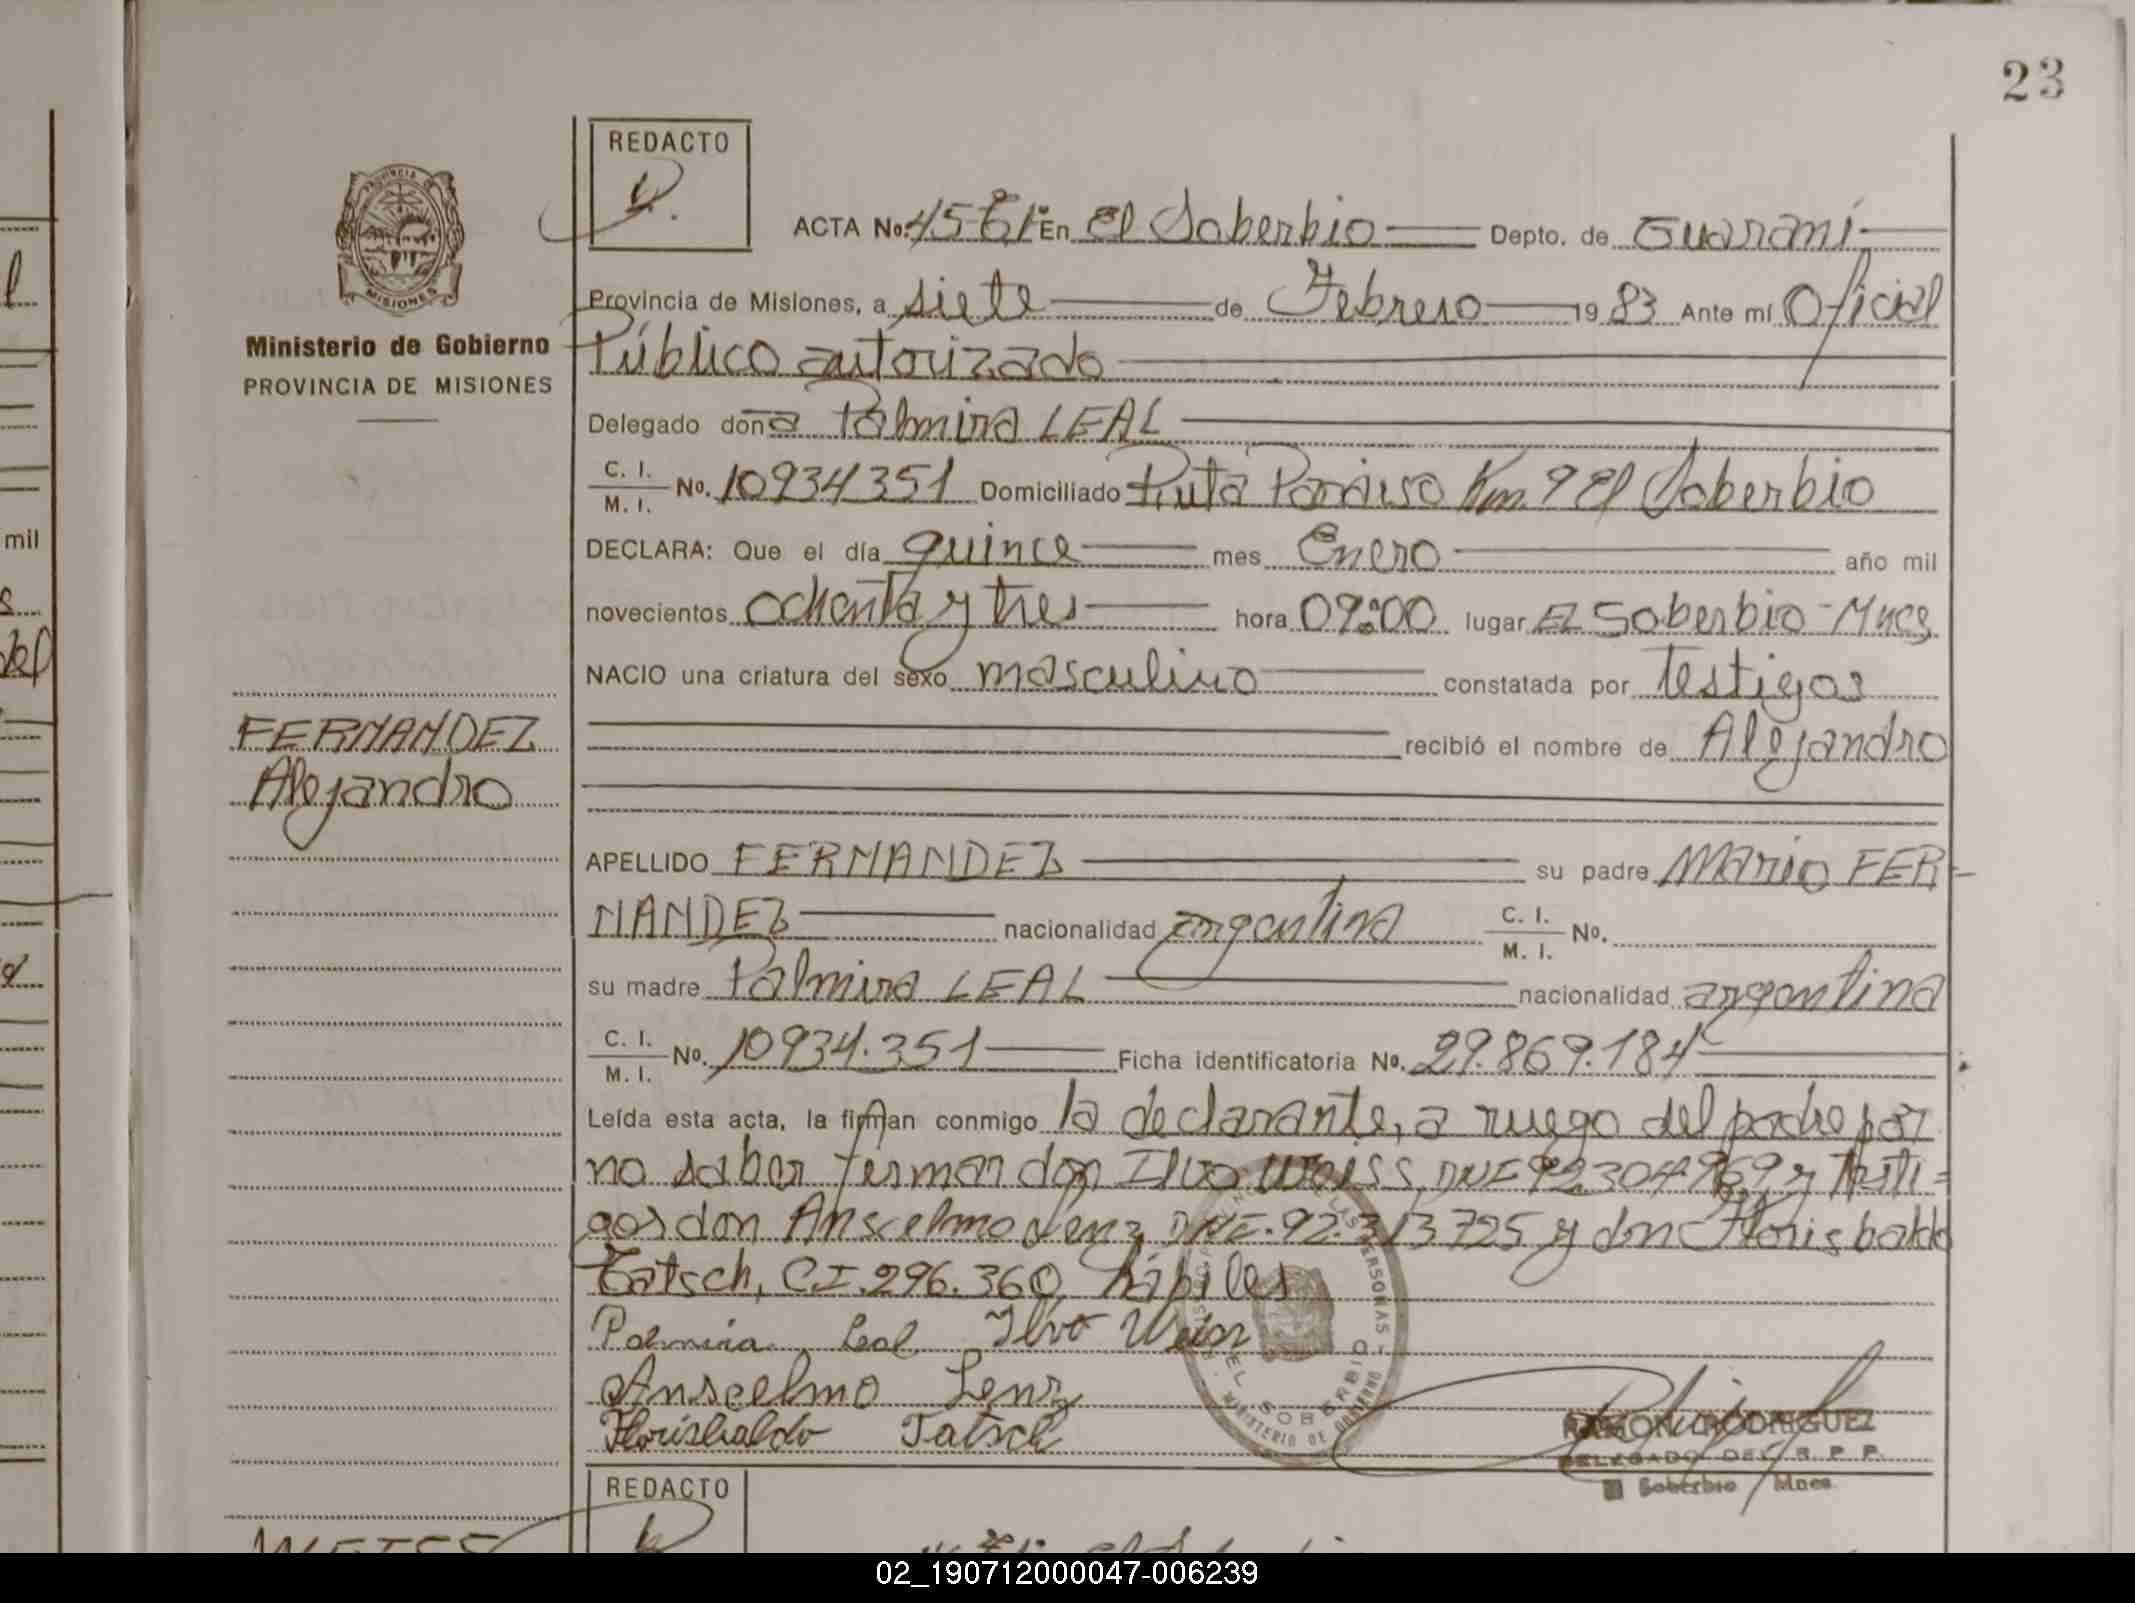 23
REDACTO
ACTA No. En El Soberbio Depto. de Guaraní
Provincia de Misiones, a siete de Febrero 1983 Ante mí Oficial
Público autorizado
Ministerio de Gobierno
PROVINCIA DE MISIONES
Delegado doña Palmira LEAL
C. I.
M. I. No. 10934351 Domiciliado Ruta Paraiso Km. 9 El Soberbio
DECLARA: Que el día quince mes Enero año mil
novecientos ochenta y tres hora 09:00 lugar El Soberbio - Mnes
NACIO una criatura del sexo masculino constatada por testigos
FERNANDEZ
Alejandro
recibió el nombre de Alejandro
APELLIDO FERNANDEZ su padre Mario FER-
NANDEZ nacionalidad argentina C. I.
M. I. No.
su madre Palmira LEAL nacionalidad argentina
C. I.
M. I. No. 10934.351 Ficha identificatoria No. 29.869.184
Leída esta acta, la firman conmigo la declarante, a ruego del padre por
no saber firmar don Ilvo Weiss, DNE 92.304969 y testi=
gos don Anscelmo Lenz DNE. 92.313725 y don Florisbaldo
Tatsch, CI. 296.360, hábiles
Palmira Leal Ilvo Weiss
Anscelmo Lenz
Florisbaldo Tatsch
EL SOBERBIO
MINISTERIO DE GOBIERNO
RAMON RODRIGUEZ
DELEGADO DEL R. P. P.
El Soberbio Mnes.
REDACTO
02_190712000047-006239